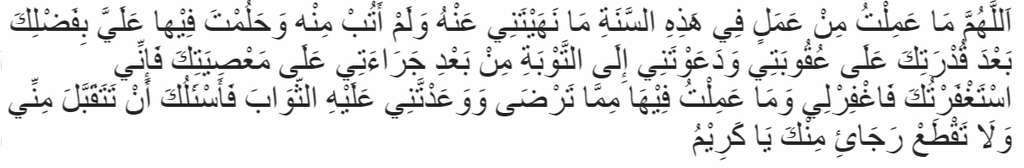 اَللَّهُمَّ مَا عَمِلْتُ مِنْ عَمَلٍ فِي هَذِهِ السَّنَةِ مَا نَهَيْتَنِي عَنْهُ وَلَمْ أَتُبْ مِنْه وَحَلُمْتَ فِيْها عَلَيَّ بِفَضْلِكَ
بَعْدَ قُدْرَتِكَ عَلَى عُقُوبَتِي وَدَعَوْتَنِي إِلَى التَّوْبَةِ مِنْ بَعْدِ جَرَاءَتِي عَلَى مَعْصِيَتِكَ فَإِنِّي
اسْتَغْفَرْتُكَ فَاغْفِرْلِي وَمَا عَمِلْتُ فِيْهَا مِمَّا تَرْضَى وَوَعَدْتَّنِي عَلَيْهِ الثَّوَابَ فَأَسْئَلُكَ أَنْ تَتَقَبَّلَ مِنِّي
وَلَا تَقْطَعْ رَجَائِ مِنْكَ يَا كَرِيْمُ